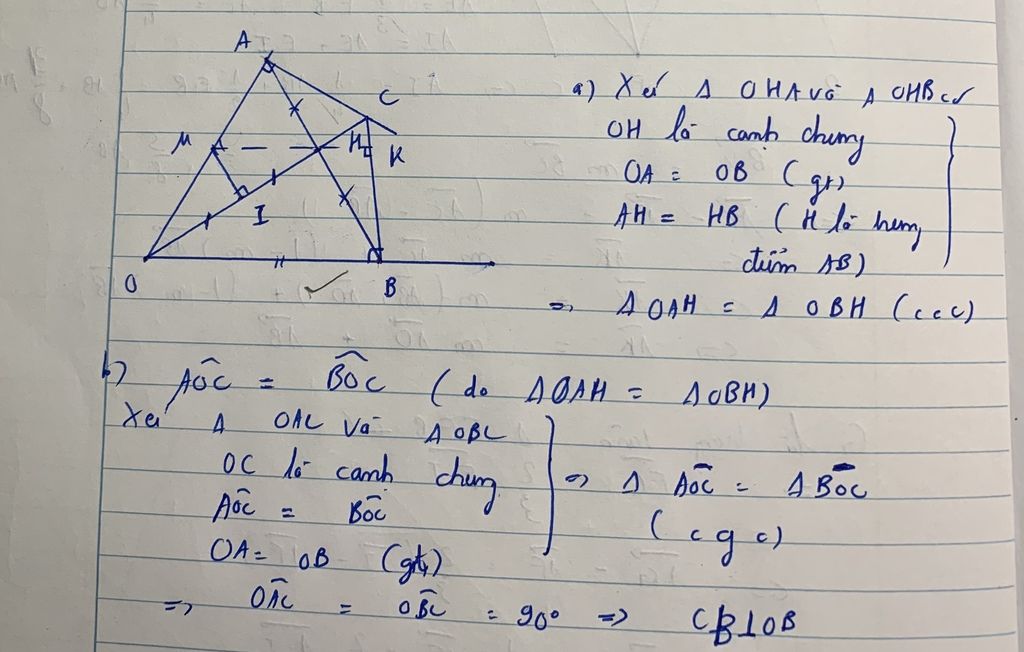 A
C
M
H
K
I
O
B
a) Xét Δ OHA và Δ OHB có
OH là cạnh chung
OA = OB (gt)
AH = HB (H là trung
điểm AB)
=> Δ OAH = Δ OBH (ccc)
b) AÔC = BÔC (do ΔOAH = ΔOBH)
Xét Δ OAC và Δ OBC
OC là cạnh chung => Δ AÔC = Δ BÔC
AÔC = BÔC (cgc)
OA = OB (gt)
=> OÂC = OB̂C = 90° => CB⊥OB